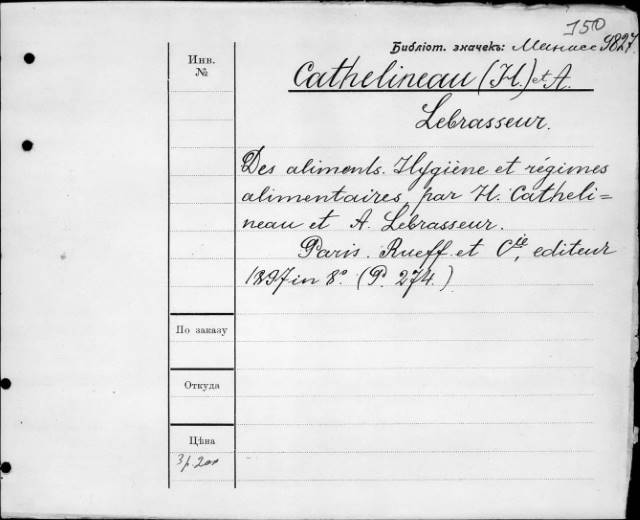 150
Библіот. значекъ: Манасс 9827.
Инв.
№
Cathelineau (H.) et A.
Lebrasseur.
Des aliments. Hygiène et régimes
alimentaires, par H. Catheli=
neau et A. Lebrasseur.
Paris. Rueff et Cie, editeur
1897 in 8° (P. 274.)
По заказу
Откуда
Цѣна
3 р.